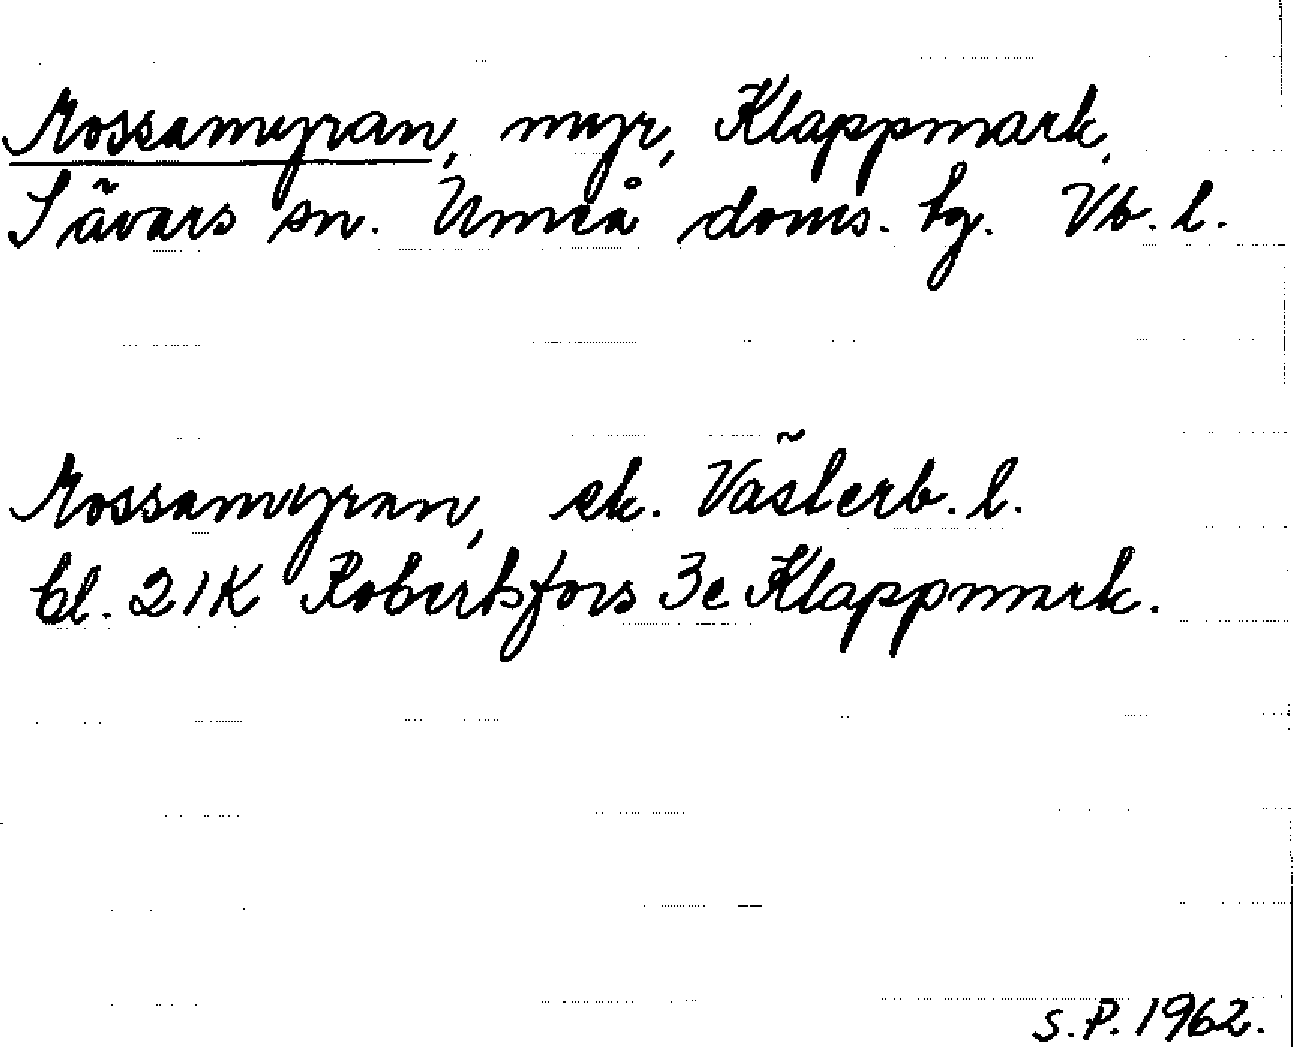 Mossamyran, myr, Klappmark,
Sävars sn. Umeå doms. hg. Vb. l.
Mossamyran, ek. Västerb. l.
bl. 21K Robertsfors 3e Klappmark.
S.P. 1962.